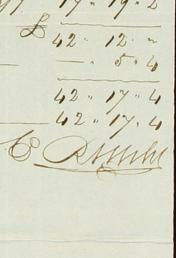 17 " 19 " 2
£ 42 " 12 " "
— " 5 " 4
42 " 17 " 4
42 " 17 " 4